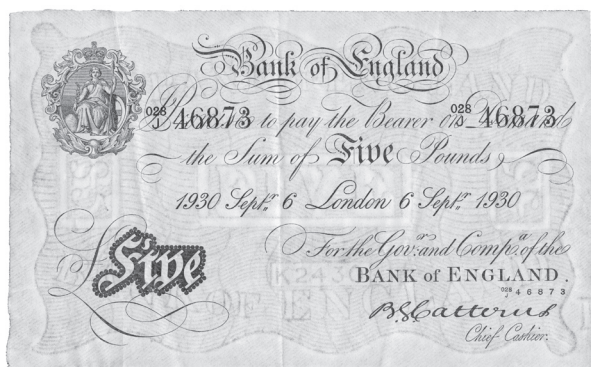 Bank of England
028 J 46873 Promise to pay the Bearer on Demand 028 J 46873
the Sum of Five Pounds
1930 Septr 6 London 6 Septr 1930
For the Govr and Compa of the
BANK of ENGLAND.
028 J 46873
£Five
B.G. Catterns
Chief Cashier.